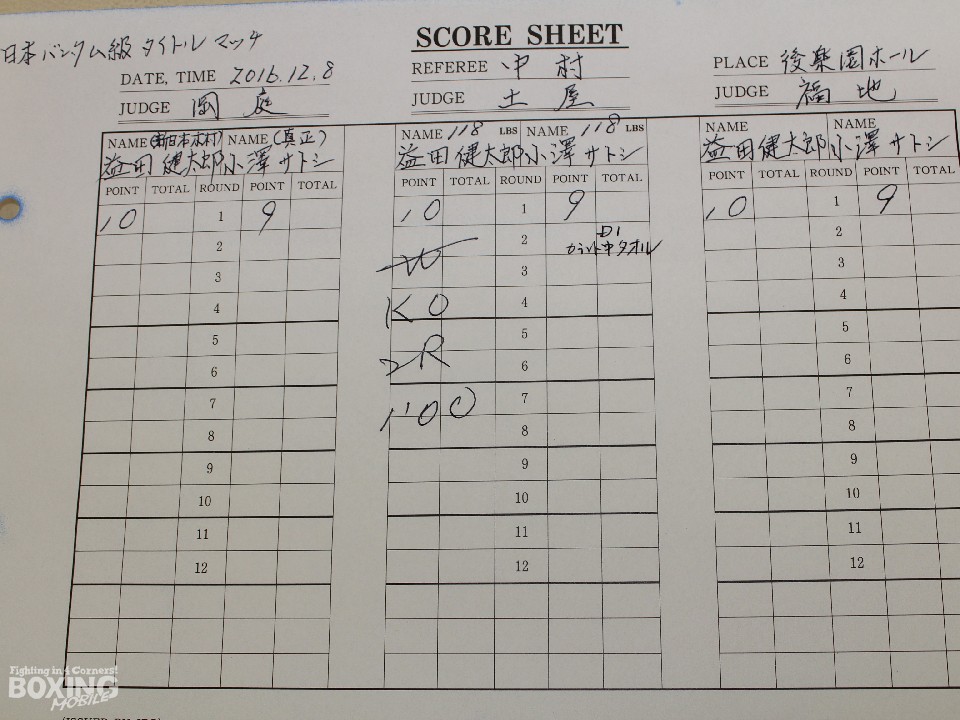 日本バンタム級タイトルマッチ
SCORE SHEET
DATE, TIME 2016.12.8
REFEREE 中村
PLACE 後楽園ホール
JUDGE 岡庭
JUDGE 土屋
JUDGE 福地
NAME (新日本木村) NAME (真正)
益田健太郎 小澤サトシ
POINT TOTAL ROUND POINT TOTAL
10 1 9
2
3
4
5
6
7
8
9
10
11
12
NAME 118 LBS NAME 118 LBS
益田健太郎 小澤サトシ
POINT TOTAL ROUND POINT TOTAL
10 1 9
2 D1
カウント中タオル
W 3
KO 4
5
2R 6
1'00 7
8
9
10
11
12
NAME NAME
益田健太郎 小澤サトシ
POINT TOTAL ROUND POINT TOTAL
10 1 9
2
3
4
5
6
7
8
9
10
11
12
Fighting in 4 Corners!
BOXING
MOBILE